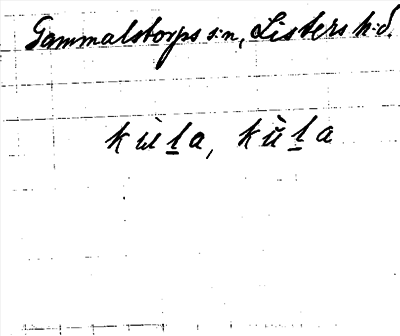 Gammalstorps s:n, Listers h:d.
kɯ̀ḻa, kùḻa